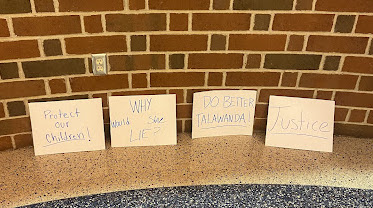 Protect
our
Children!
WHY
Would She
LIE?
DO BETTER
TALAWANDA!
Justice